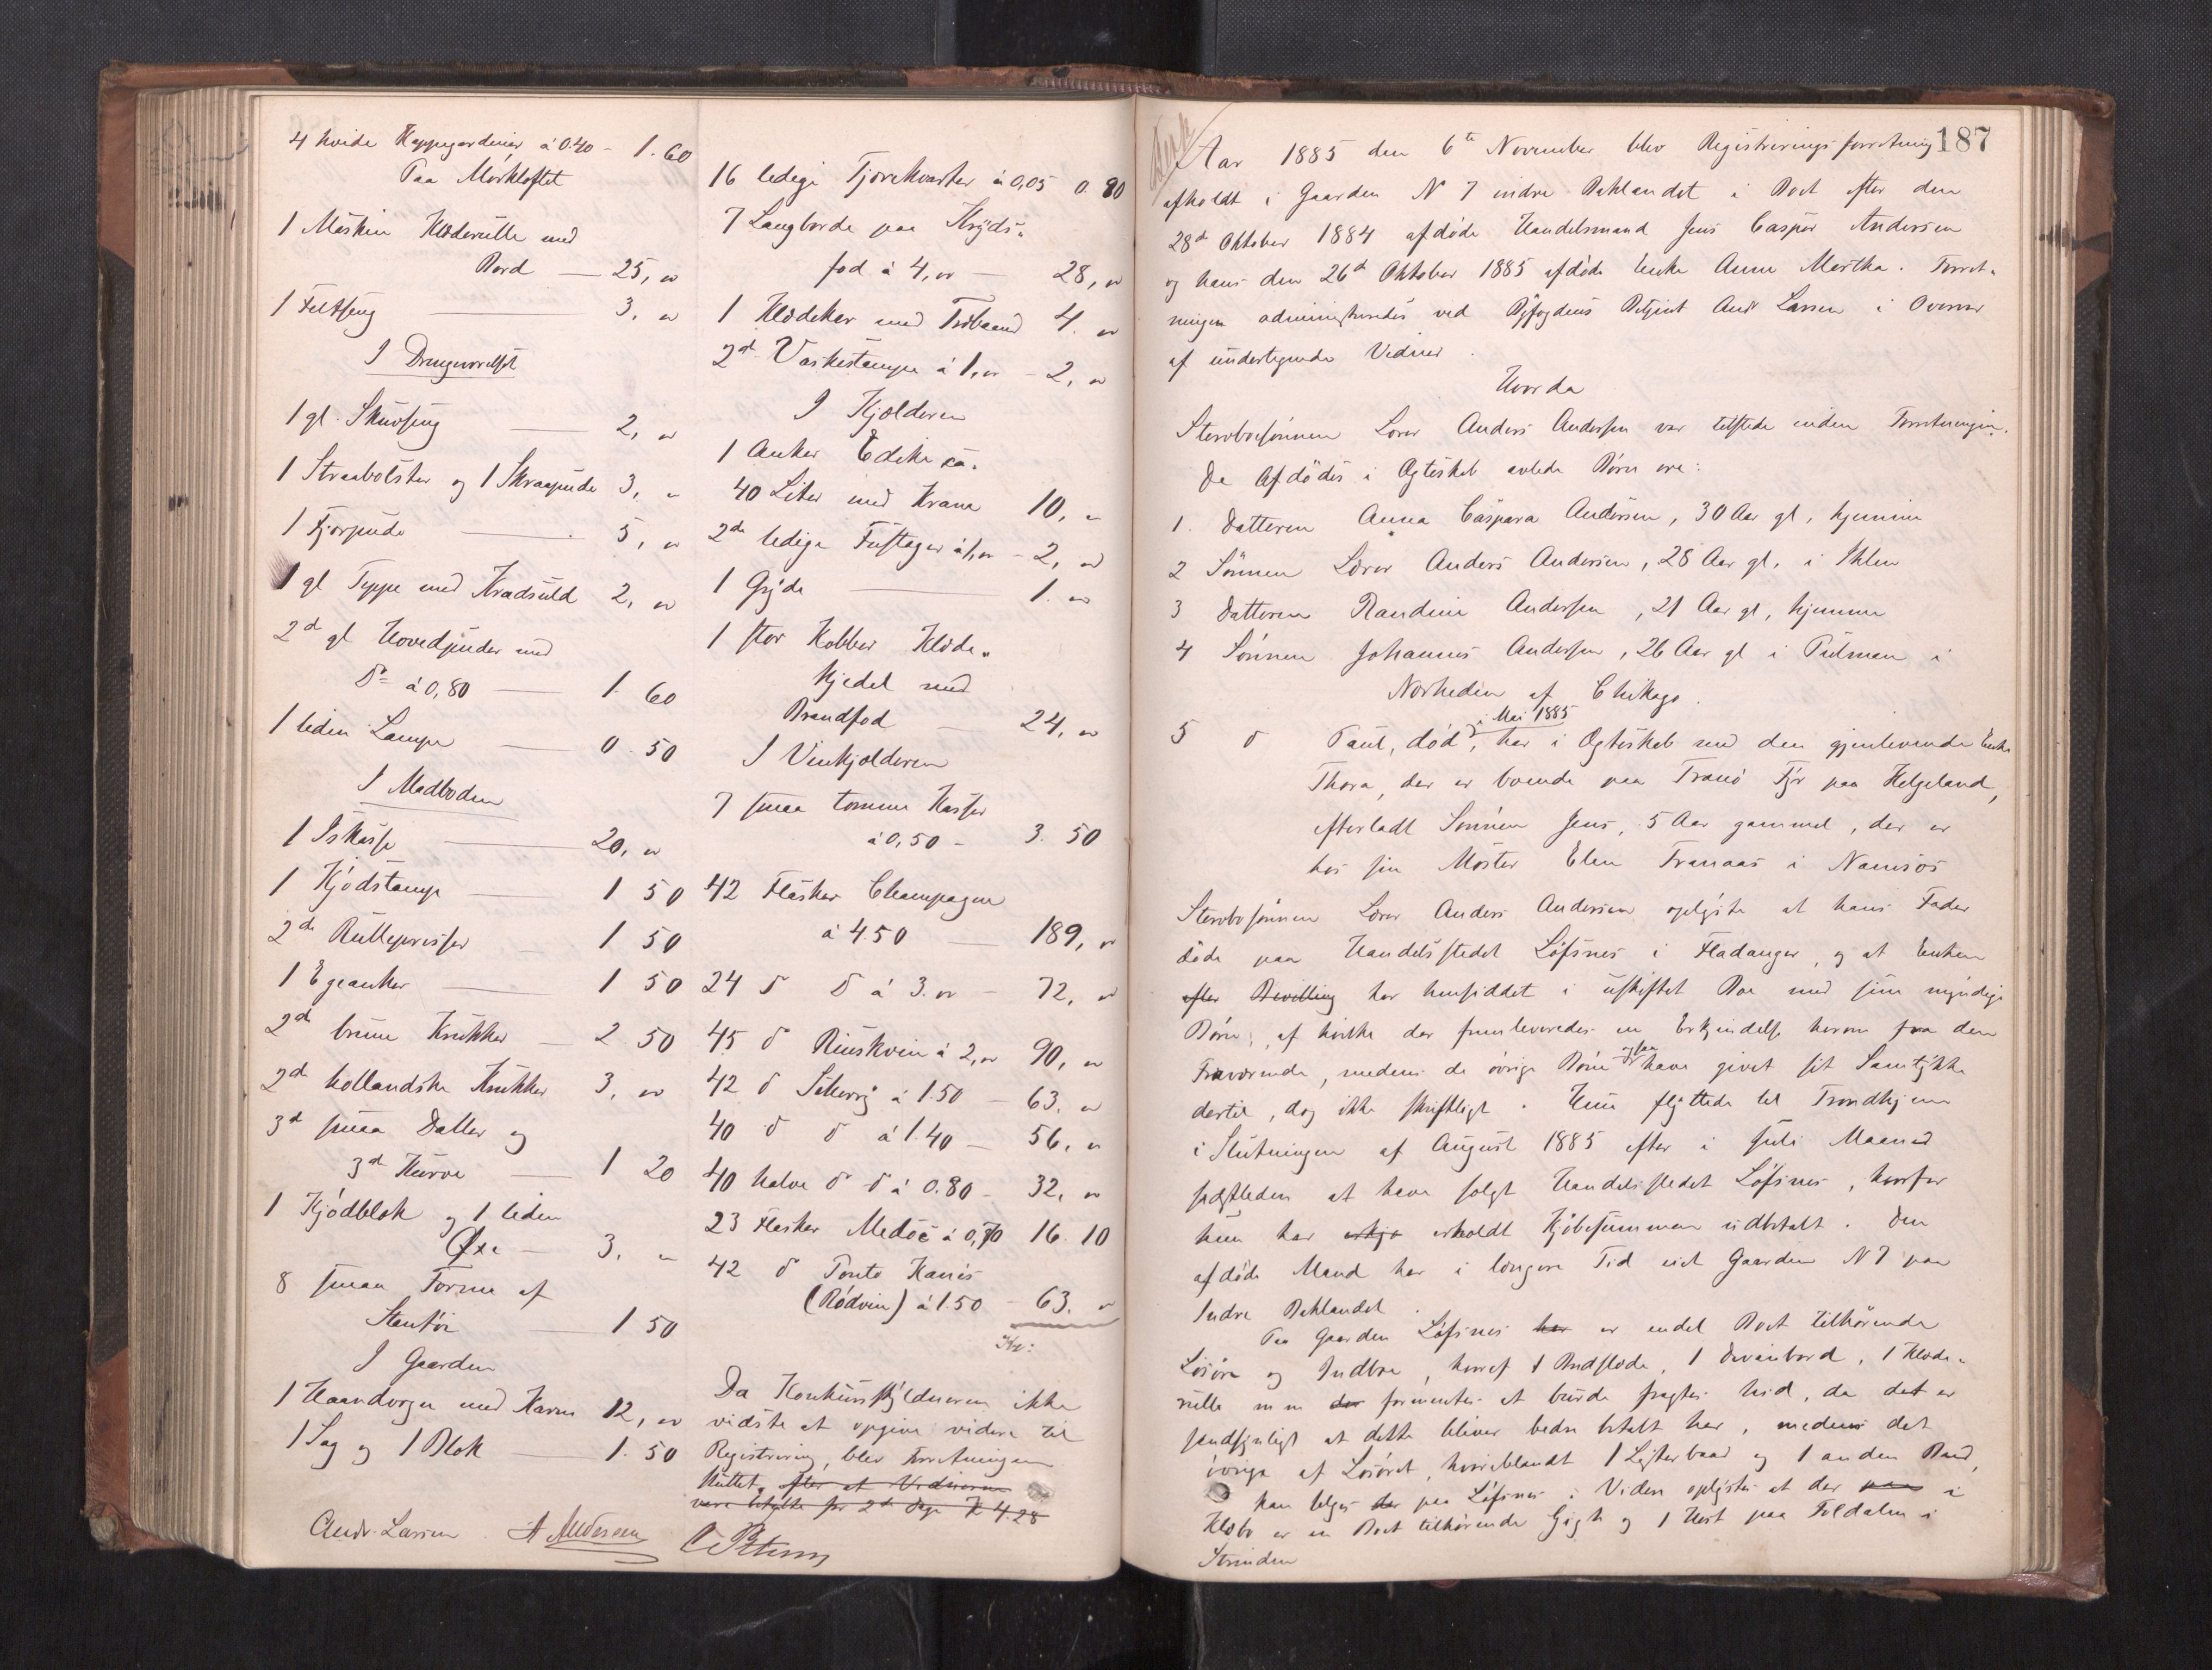 4 hvide Kappegardiner á 0.40 - 1.60
Paa Mørkloftet
1 Maskin Klæderulle med
Bord — 25, "
1 Feltseng — 3, "
I Drengeværelset
1 gl. Skuvseng — 2, "
1 Straabolster og 1 Skraapude 3, "
1 Fjørpude — 5, "
1 gl Teppe med Kradsuld 2, "
2de gl Hovedpuder med
do á 0,80 — 1. 60
1 liden Lampe — 0. 50
I Madboden
1 Iskasse — 20, "
1 Kjødstampe — 1 50
2de Rullepresser — 1 50
1 Egeanker — 1 50
2de brune Krukker — 2 50
2de hollandske Krukker 3, "
3de smaa Daller og
3de Kurve — 1 20
1 Kjødblok og 1 liden
Øxe — 3. "
8 smaa Forme af
Stentøi — 1 50
I Gaarden
1 Haandvogn med Karm 12, "
1 Sag og 1 Blok — 1. 50
16 ledige Tjørekvarter á 0,05 0. 80
7 Langborde paa Kryds-
fod á 4, " — 28, "
1 Klædekar med Træbaand 4. "
2de Vasketampe á 1, " - 2, "
I Kjælderen
1 Anker Edike ca.
40 Liter med Krane 10, "
2de ledige Fustager á 1, " - 2, "
1 Gryde — 1. "
1 stor Kobber Klæde-
kjedel med
Brandfod — 24, "
I Vinkjælderen
7 smaa tomme Kasser
á 0,50 - 3. 50
42 Flasker Champagne
á 4.50 — 189, "
24 do do á 3. " - 72, "
45 do Rinskvin á 2, " 90, "
42 do Scherry á 1.50 - 63. "
40 do do á 1.40 - 56, "
40 halve do do á 0.80 - 32, "
23 Flasker Medoc á 0,70 16. 10
42 do Ponte Kanés
(Rødvin) á 1.50 - 63. "
Kr:
Da Konkursskyldneren ikke
vidste at opgive videre til
Registrering, blev Forretningen
sluttet, efter at Vidnerne
vare betalte for 2de Dage K 4.28
Andr. Larsen A Andersen C Petersen
187
Aar 1885 den 6te November blev Registreringsforretning
afholdt i Gaarden N 7 indre Baklandet i Boet efter den
28de Oktober 1884 afdøde Handelsmand Jens Caspar Andersen
og hans den 26de Oktober 1885 afdøde Enke Anne Martha. Forret-
ningen administreredes ved Byfogdens Betjent Andr Larsen i Overvær
af undertegnede Vidner.
Hvorda
Stervbosønnen Lærer Anders Andersen var tilstede under Forretningen.
De Afdødes i Ægteskab avlede Børn ere:
1. Datteren Anna Caspara Andersen, 30 Aar gl, hjemme
2 Sønnen Lærer Anders Andersen, 28 Aar gl. i Ihlen
3 Datteren Randine Andersen, 21 Aar gl, hjemme
4 Sønnen Johannes Andersen, 26 Aar gl i Pulman i
Nærheden af Chikago.
i Mai 1885
5 do Paul, død, har i Ægteskab med den gjenlevende Enke
Thora, der er boende paa Træno Fyr paa Helgeland,
efterladt Sønnen Jens, 5 Aar gammel, der er
hos sin Moster Elen Tranaas i Namsos
Stervbosønnen Lærer Anders Andersen oplyste at hans Fader
døde paa Handelsstedet Løfsnes i Fladanger, og at Enken
efter Bevilling har hensiddet i uskiftet Boe med sine myndige
Børn, af hvilke der fremleveredes en Erkjendelse herom fra den
Fraværende, medens de øvrige Børn ogsaa have givet sit Samtykke
dertil, dog ikke skriftligt. Hun flyttede til Trondhjem
i Slutningen af August 1885 efter i Juli Maaned
sidstleden at have solgt Handelsstedet Løfsnes, hvorfor
hun har erholdt Kjøbesummen udbetalt. Den
afdøde Mand har i længere Tid eiet Gaarden N 7 paa
Indre Baklandet.
Paa Gaarden Løfsnes har er endel Boet tilhørende
Løsøre og Indboe, hvoraf 1 Bredslæde, 1 Divanbord, 1 Klæde-
rulle m m der formentes at burde fragtes hid, da det er
sandsynligt at dette bliver bedre betalt her, medens det
øvrige af Løsøret, hvoriblandt 1 Lysterbaad og 1 anden Baad,
kan selges der paa Løfsnes. Videre oplystes at der paa i
Klæbo er en Boet tilhørende Gigh og 1 Hest paa Foldalen i
Strinden